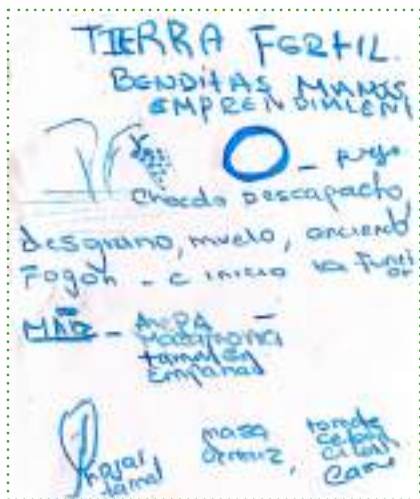 TIERRA FERTIL.
BENDITAS MANOS
EMPRENDIMIENT
- fuego
choclo Descapacho,
desgrano, muelo, enciendo
Fogón - e inicio la Funci
on
MAÍZ - AREPA
Mazamorra
tamales
Empanad
hojas
tamal
masa
de maiz,
tomate
cebolla
Carne